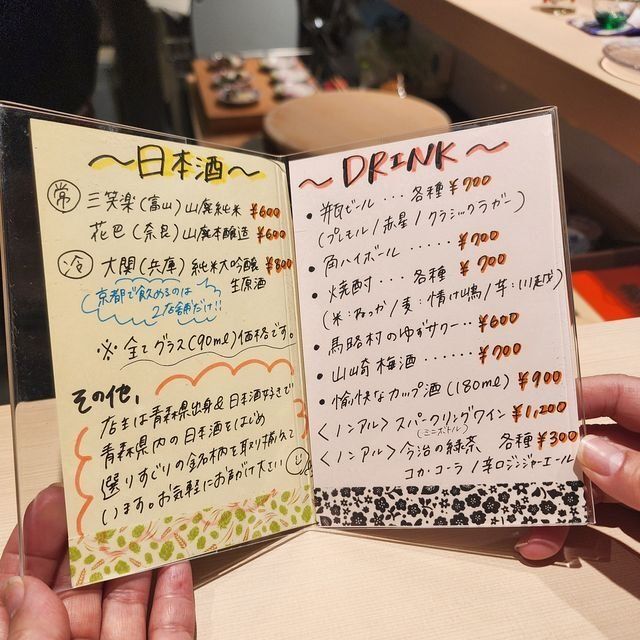 〜日本酒〜
常 三笑楽(富山)山廃純米 ¥600
花巴(奈良)山廃本醸造 ¥600
冷 大関(兵庫)純米大吟醸 ¥800
生原酒
(京都で飲めるのは
2店舗だけ!!
※全てグラス(90ml)価格です。
その他、
店主は青森県出身&日本酒好きで
青森県内の日本酒をはじめ
選りすぐりの銘柄を取り揃えて
います。お気軽にお声がけ下さい
〜DRINK〜
• 瓶ビール・・・各種 ¥700
(プレモル/赤星/クラシックラガー)
• 角ハイボール・・・・・ ¥700
• 焼酎・・・各種 ¥700
(米:なっか/麦:情け嶋/芋:川越)
• 馬路村のゆずサワー・・ ¥600
• 山崎梅酒・・・・・・ ¥700
• 愉快なカップ酒(180ml) ¥900
〈ノンアル〉スパークリングワイン ¥1,200
(ミニボトル)
〈ノンアル〉今治の緑茶 各種 ¥300
コカ・コーラ/辛口ジンジャーエール